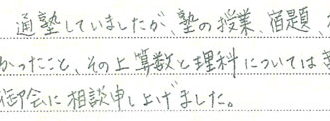 通塾していましたが、塾の授業、宿題、
かったこと、その上算数と理科については
御会に相談申し上げました。